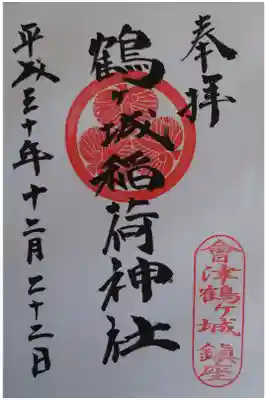 奉拝
鶴ヶ城稲荷神社
平成三十年十二月二十二日
會津鶴ヶ城鎮座